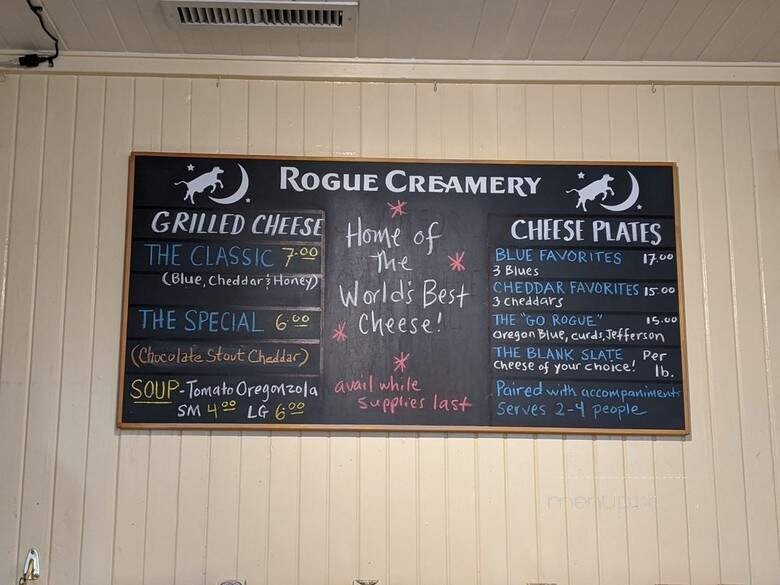 ROGUE CREAMERY
GRILLED CHEESE
THE CLASSIC 7.00
(Blue, Cheddar & Honey)
THE SPECIAL 6.00
(Chocolate Stout Cheddar)
SOUP-Tomato Oregonzola
SM 4.00 LG 6.00
Home of
The
World's Best
Cheese!
avail while
supplies last
CHEESE PLATES
BLUE FAVORITES 17.00
3 Blues
CHEDDAR FAVORITES 15.00
3 cheddars
THE "GO ROGUE" 15.00
Oregon Blue, curds, Jefferson
THE BLANK SLATE Per
Cheese of your choice! lb.
Paired with accompaniments
Serves 2-4 people